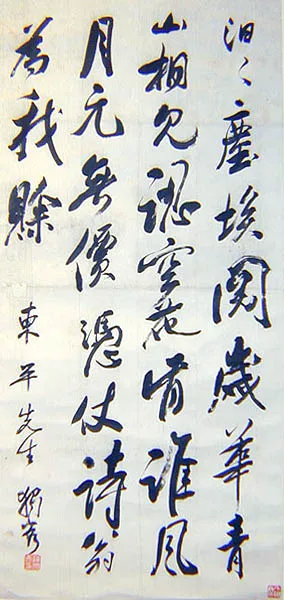 汩々塵埃閱歲華青
山相見空花淮風
月元無價憑仗詩翁
為我賒
東平先生 獨秀